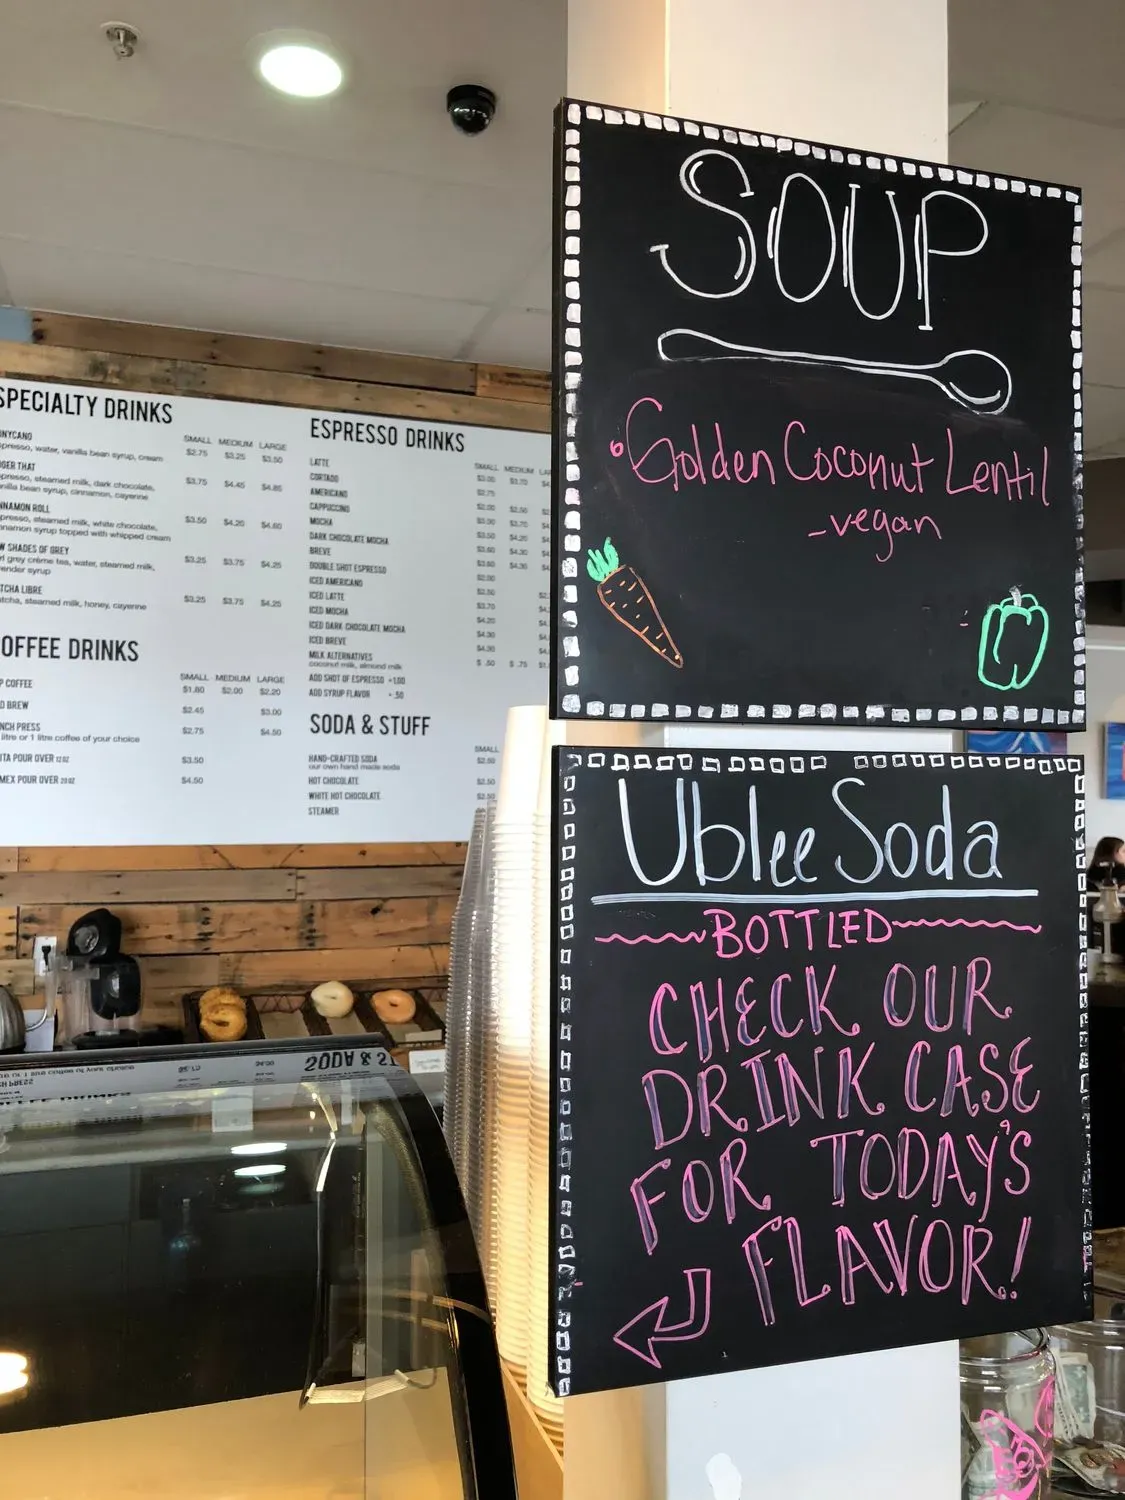 SOUP
Golden Coconut Lentil
-vegan
Ublee Soda
BOTTLED
CHECK OUR
DRINK CASE
FOR TODAY'S
FLAVOR!
SPECIALTY DRINKS
SMALL MEDIUM LARGE
NYCANO $2.75 $3.25 $3.50
presso, water, vanilla bean syrup, cream
GER THAT
presso, steamed milk, dark chocolate, $3.75 $4.45 $4.85
nilla bean syrup, cinnamon, cayenne
NNAMON ROLL
presso, steamed milk, white chocolate, $3.50 $4.20 $4.60
nnamon syrup topped with whipped cream
W SHADES OF GREY
rl grey crème tea, water, steamed milk, $3.25 $3.75 $4.25
ender syrup
TCHA LIBRE
tcha, steamed milk, honey, cayenne $3.25 $3.75 $4.25
OFFEE DRINKS
SMALL MEDIUM LARGE
P COFFEE $1.80 $2.00 $2.20
D BREW $2.45 $3.00
NCH PRESS $2.75 $4.50
litre or 1 litre coffee of your choice
ITA POUR OVER 12 OZ $3.50
MEX POUR OVER 20 OZ $4.50
ESPRESSO DRINKS
SMALL MEDIUM LA
LATTE
CORTADO
AMERICANO
CAPPUCCINO
MOCHA
DARK CHOCOLATE MOCHA
BREVE
DOUBLE SHOT ESPRESSO
ICED AMERICANO
ICED LATTE
ICED MOCHA
ICED DARK CHOCOLATE MOCHA
ICED BREVE
MILK ALTERNATIVES $ .50 $ .75 $1.
coconut milk, almond milk
ADD SHOT OF ESPRESSO +1.00
ADD SYRUP FLAVOR + .50
SODA & STUFF
SMALL
HAND-CRAFTED SODA $2.50
our own hand made soda
HOT CHOCOLATE $2.50
WHITE HOT CHOCOLATE $2.50
STEAMER